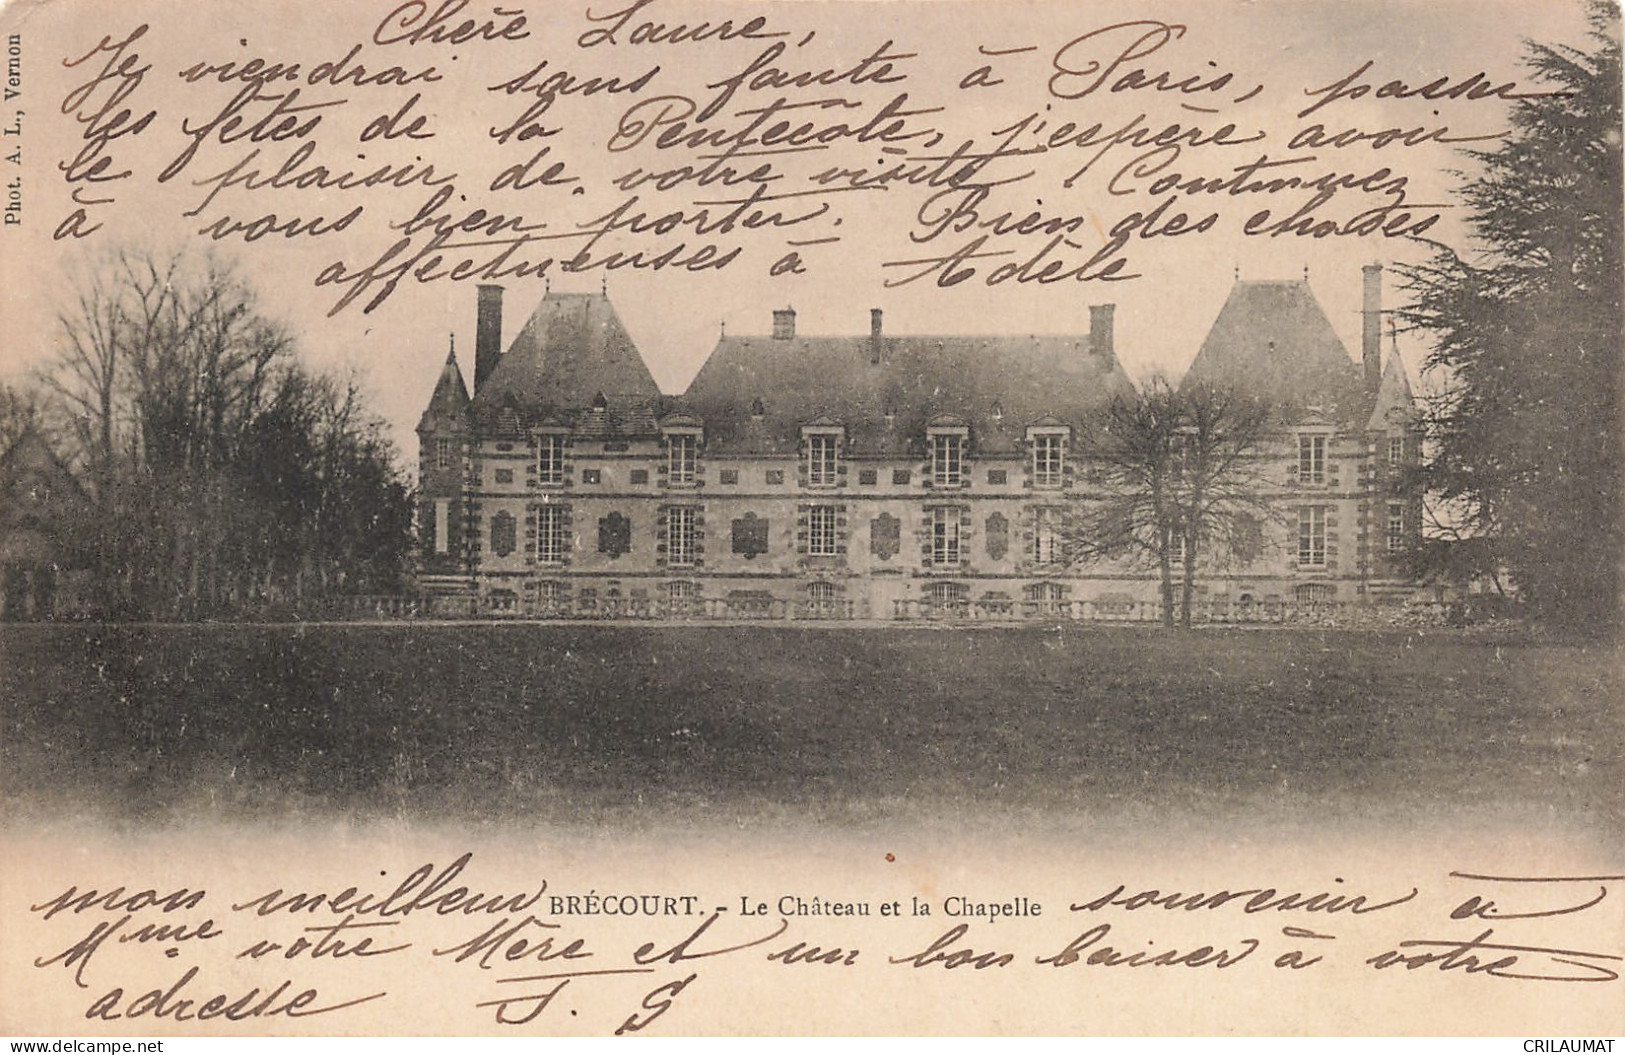 Chère Laure,
Je viendrai sans faute à Paris, passer
les fêtes de la Pentecôte, j'espère avoir
le plaisir de votre visite. Continuez
à vous bien porter. Bien des choses
affectueuses à Adèle
Phot. A. L., Vernon
mon meilleur BRÉCOURT. - Le Château et la Chapelle souvenir à
Mme votre Mère et un bon baiser à votre
adresse J. G
delcampe.net
CRILAUMAT